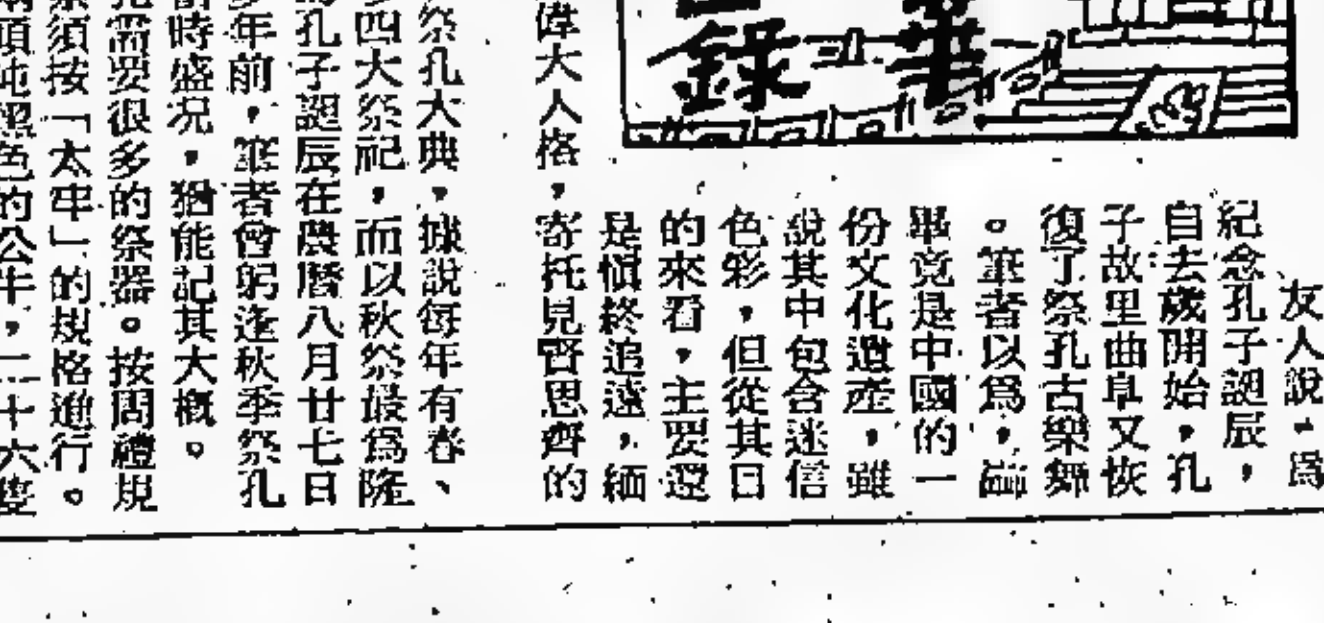 錄
華
友人說，爲
紀念孔子誕辰，
自去歲開始，孔
子故里曲阜又恢
復了祭孔古樂舞
。筆者以爲，這
畢竟是中國的一
份文化遺產，雖
說其中包含迷信
色彩，但從其日
的來看，主要還
是愼終追遠，緬
偉大人格，寄托見賢思齊的
祭孔大典，據說每年有春、
四大祭祀，而以秋祭最爲隆
孔子誕辰在農曆八月廿七日
年前，筆者曾躬逢秋季祭孔
時盛况，猶能記其大概。
需要很多的祭器。按周禮規
須按「太牢」的規格進行。
頭純黑色的公牛，二十六隻